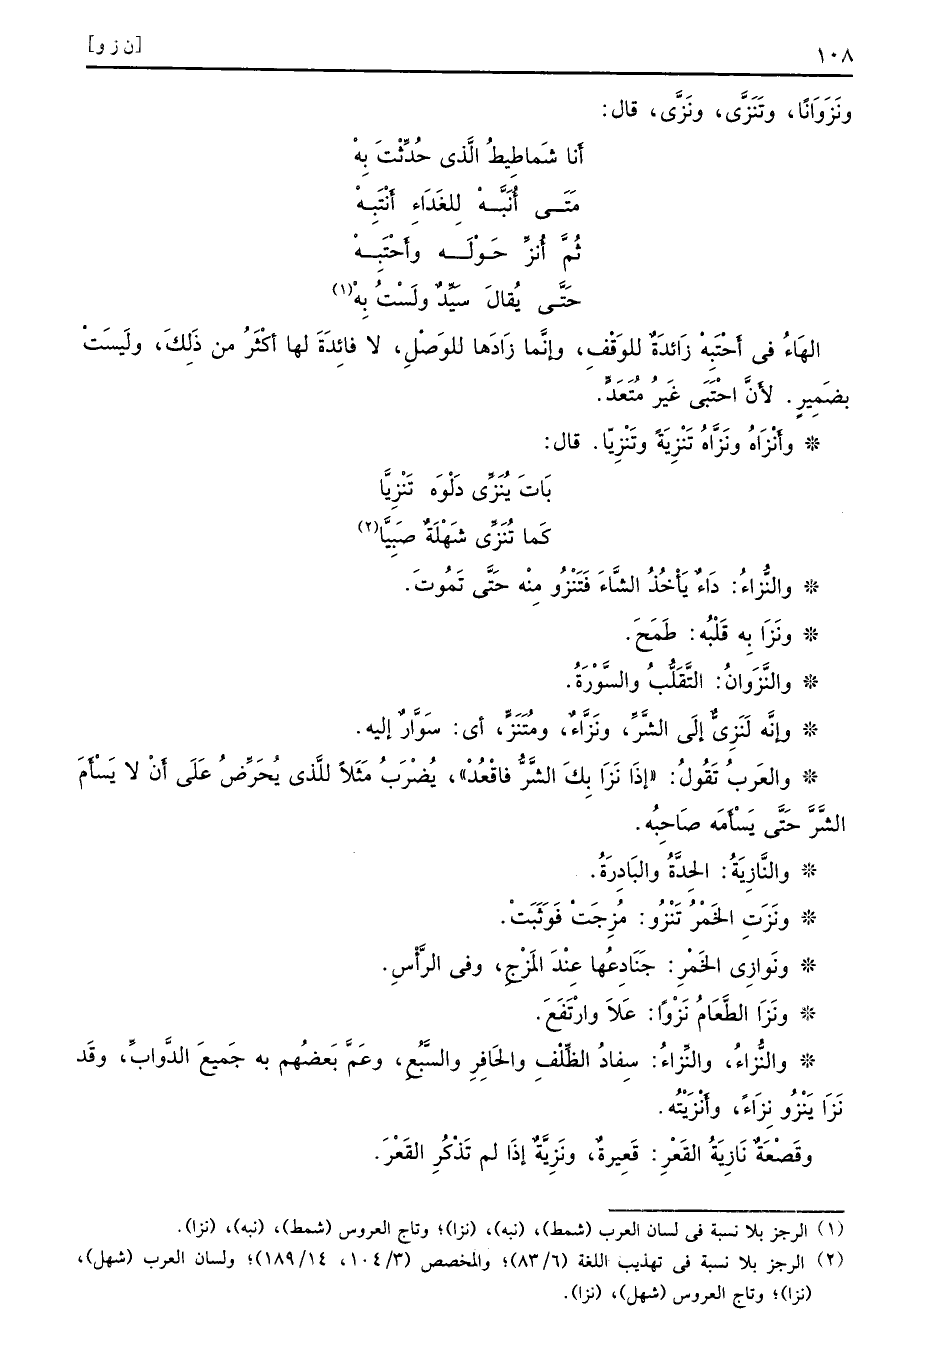 ١٠٨
[ن ز و]
ونَزَوَانًا، وتَنَزَّى، ونَزَّى، قال:
أَنا شَماطِيطُ الَّذى حُدِّثْتَ بِهْ
مَتَــى أُنَبَّــهْ لِلغَدَاءِ أَنْتَبِــهْ
ثُمَّ أُنزِّ حَـوْلَــه وأَحْتَبِــهْ
حَتَّـى يُقالَ سَيِّدٌ ولَسْتُ بِهْ(١)
الهَاءُ فى أَحْتَبِهْ زَائدَةٌ للوَقْفِ، وإنَّما زَادَها للوَصْلِ، لا فائدَةَ لها أكْثَرُ من ذَلِكَ، ولَيسَتْ
بضَمِيرٍ. لأَنَّ احْتَبَى غَيرُ مُتَعَدٍّ.
* وأَنْزَاهُ ونَزَّاهُ تَنْزِيَةً وتَنْزِيّا. قال:
بَاتَ يُنَزِّى دَلْوَه تَنْزِيًّا
كَما تُنَزِّى شَهْلَةٌ صَبِيًّا(٢)
* والنُّزاءُ: دَاءٌ يَأْخُذُ الشَّاءَ فَتَنْزُو مِنْه حَتَّى تَمُوتَ.
* ونَزَا بِه قَلْبُه: طَمَحَ.
* والنَّزَوانُ: التَّقَلُّبُ والسَّوْرَةُ.
* وإنَّه لَنَزِىٌّ إلَى الشَّرِّ، ونَزَّاءٌ، ومُتَنَزٍّ، أى: سَوَّارٌ إليه.
* والعَربُ تَقُولُ: «إذَا نَزَا بِكَ الشَّرُّ فاقْعُدْ»، يُضْرَبُ مَثَلاً للَّذى يُحَرِّضُ عَلَى أَنْ لا يَسْأَمَ
الشَّرَّ حَتَّى يَسْأَمَه صَاحِبُه.
* والنَّازِيَةُ: الحِدَّةُ والبَادِرَةُ.
* ونَزَتِ الخَمْرُ تَنْزُو: مُزِجَتْ فَوَثَبَتْ.
* ونَوازِى الخَمْرِ: جَنَادِعُها عِنْدَ المَزْجِ، وفى الرَّأْسِ.
* ونَزَا الطَّعَامُ نَزْوًا: عَلاَ وارْتَفَعَ.
* والنُّزاءُ، والنِّزاءُ: سِفادُ الظِّلْفِ والحَافِرِ والسَّبُعِ، وعَمَّ بَعضُهم به جَميعَ الدَّوابِّ، وقَد
نَزَا يَنْزُو نِزَاءً، وأَنْزَيْتُه.
وقَصْعَةٌ نَازِيَةُ القَعْرِ: قَعِيرةٌ، ونَزِيَّةٌ إذَا لم تَذْكُرِ القَعْرَ.
(١) الرجز بلا نسبة فى لسان العرب (شمط)، (نبه)، (نزا)؛ وتاج العروس (شمط)، (نبه)، (نزا).
(٢) الرجز بلا نسبة فى تهذيب اللغة (٨٣/٦)؛ والمخصص (١٠٤/٣، ١٨٩/١٤)؛ ولسان العرب (شهل)،
(نزا)؛ وتاج العروس (شهل)، (نزا).